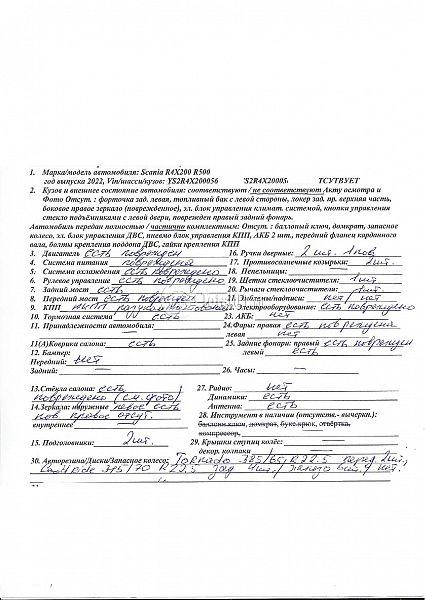 1. Марка/модель автомобиля: Scania R4X200 R500
год выпуска 2022, Vin/шасси/кузов: YS2R4X200056 'S2R4X20005 ТСУТВУЕТ
2. Кузов и внешнее состояние автомобиля: соответствуют / не соответствуют Акту осмотра и
Фото Отсут. : форточка зад. левая, топливный бак с левой стороны, локер зад. пр. верхняя часть,
боковое правое зеркало (поврежденное), эл. блок управления климат. системой, кнопки управления
стекло подъёмниками с левой двери, поврежден правый задний фонарь.
Автомобиль передан полностью / частично комплектным: Отсут : баллонный ключ, домкрат, запасное
колесо, эл. блок управления ДВС, пневмо блок управления КПП, АКБ 2 шт., передний фланец карданного
вала, болты крепления поддона ДВС, гайки крепления КПП
3. Двигатель есть поврежден
16. Ручки дверные: 2 шт. 1 пов
4. Система питания повреждена
17. Противосолнечные козырьки: 2шт.
5. Система охлаждения есть повреждено
18. Пепельницы: —
6. Рулевое управление есть
19. Щетки стеклоочистителя: 1шт
7. Задний мост есть
20. Рычаги стеклоочистителя: 1шт.
8. Передний мост есть поврежден
21. Эмблемы/надписи: нет / нет
9. КПП
22. Электрооборудование: есть повреждено
10. Тормозная система есть
23. АКБ: нет
11. Принадлежности автомобиля:
24. Фары: правая есть повреждена
левая нет
11(А) Коврики салона: есть
25. Задние фонари: правый есть поврежден
левый есть
12. Бампер:
Передний: нет
Задний: —
26. Часы: —
13. Стёкла салона: есть
повреждено (см. фото)
27. Радио: нет
Динамики: есть
Антенна: есть
14. Зеркала: наружные левое есть
пов правое отсут.
внутреннее —
28. Инструмент в наличии (отсутств.- вычеркн.):
баллон.ключ, домкрат, букс.крюк, отвёртка,
компрессор.
15. Подголовники: 2шт.
29. Крышки ступиц колёс: —
декор. колпаки —
30. Авторезина/Диски/Запасное колесо: Tornado 385/65 R22.5 перед 2шт.,
315/70 R22.5 зад 4шт. / нет.